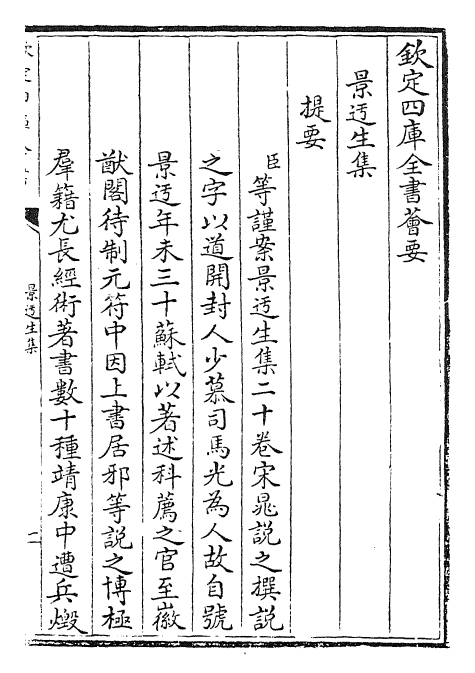 欽定四庫全書薈要
景迂生集
提要
臣等謹案景迂生集二十卷宋晁説之撰説
之字以道開封人少慕司馬光為人故自號
景迂年未三十蘇軾以著述科薦之官至徽
猷閣待制元符中因上書居邪等説之博極
羣籍尤長經術著書數十種靖康中遭兵燬
景迂生集